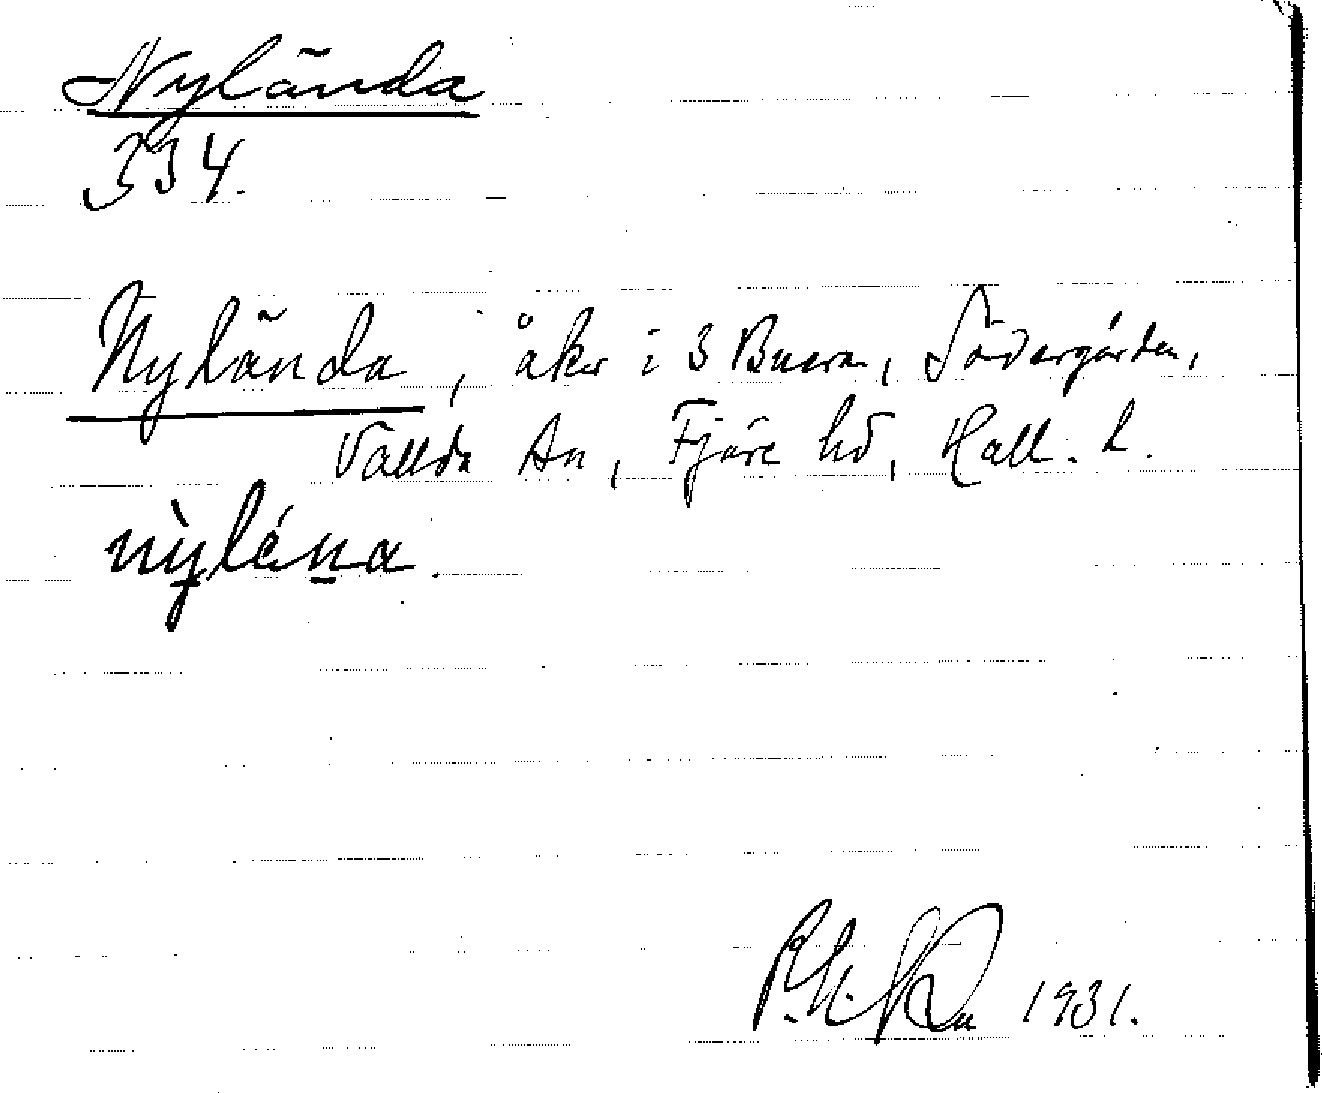 Nylända
334.
Nylända, åker i 3 Buera, Södergården,
Vallda sn, Fjäre hd, Hall. l.
nỳléṉa.
1931.